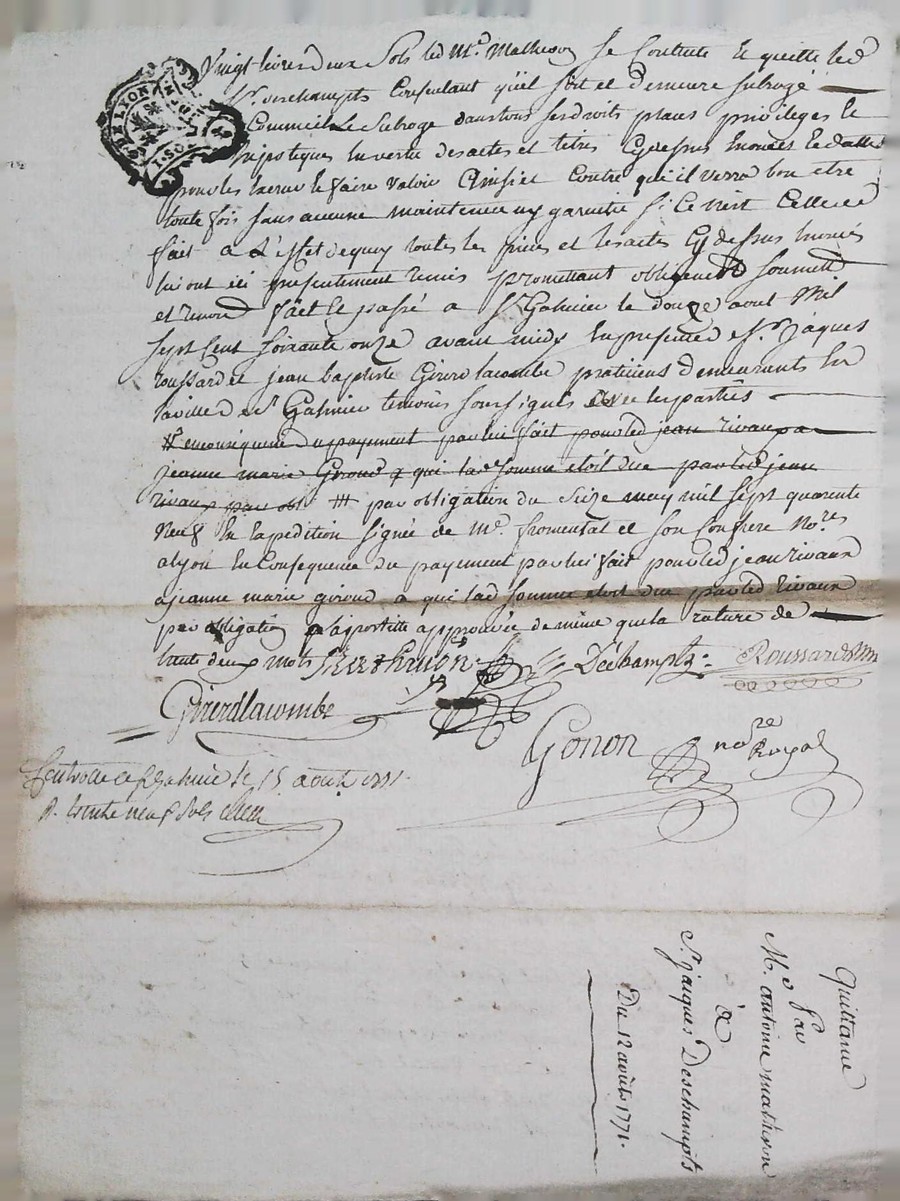 GEN. DE LYON
1. SOL
Vingt livres deux Sols led Mre. Matheron Se Contente et quitte led
Sr. deschampts Consentant qu'il soit et demeure subrogé
Comme il Le Subroge dans tous ses droits places privileges et
hipoteques en vertu des actes et titres Cy dessus enoncés et dattés
pour les exercer et faire valoir Ainsi et Contre qui il verra bon etre
toute fois sans aucune maintenue ny garantie Si Ce n'est Celle de
fait a L'effet dequoy toutes les pieces et les actes Cy dessus enoncés
lui ont été presentement remis promettant obligeant soumett
et renon fait et passé a St Galmier le douze aout Mil
sept Cent soixante onze avant midy En presence de Sr. Jaques
roussard et jean baptiste Girerd lacombe praticiens demeurants en
la ville de St Galmier temoins soussignés avec les parties
et en consequence du payement par lui fait pour led jean rivaux a
jeanne marie Giroud a qui lad somme etoit due par led jean
rivaux par obli # par obligation du seize may mil sept quarente
neuf En Expedition signée de Me. fromental et son Confrere Nores
a lyon En Consequence du payement par lui fait pour led jean rivaux
a jeanne marie giroud a qui lad somme etoit due par led rivaux
par obligation l'apostille approuvée de même que la rature de
huit deux mots Matheron Déchamptz Roussard
Girerdlacombe
Gonon nore Royal
Controlle a St galmier le 15 aout 1771
R. trente neuf sols
Quittance
Par
M. antoine matheron
à
Sr. jaques Deschampts
Du 12 aoust 1771.